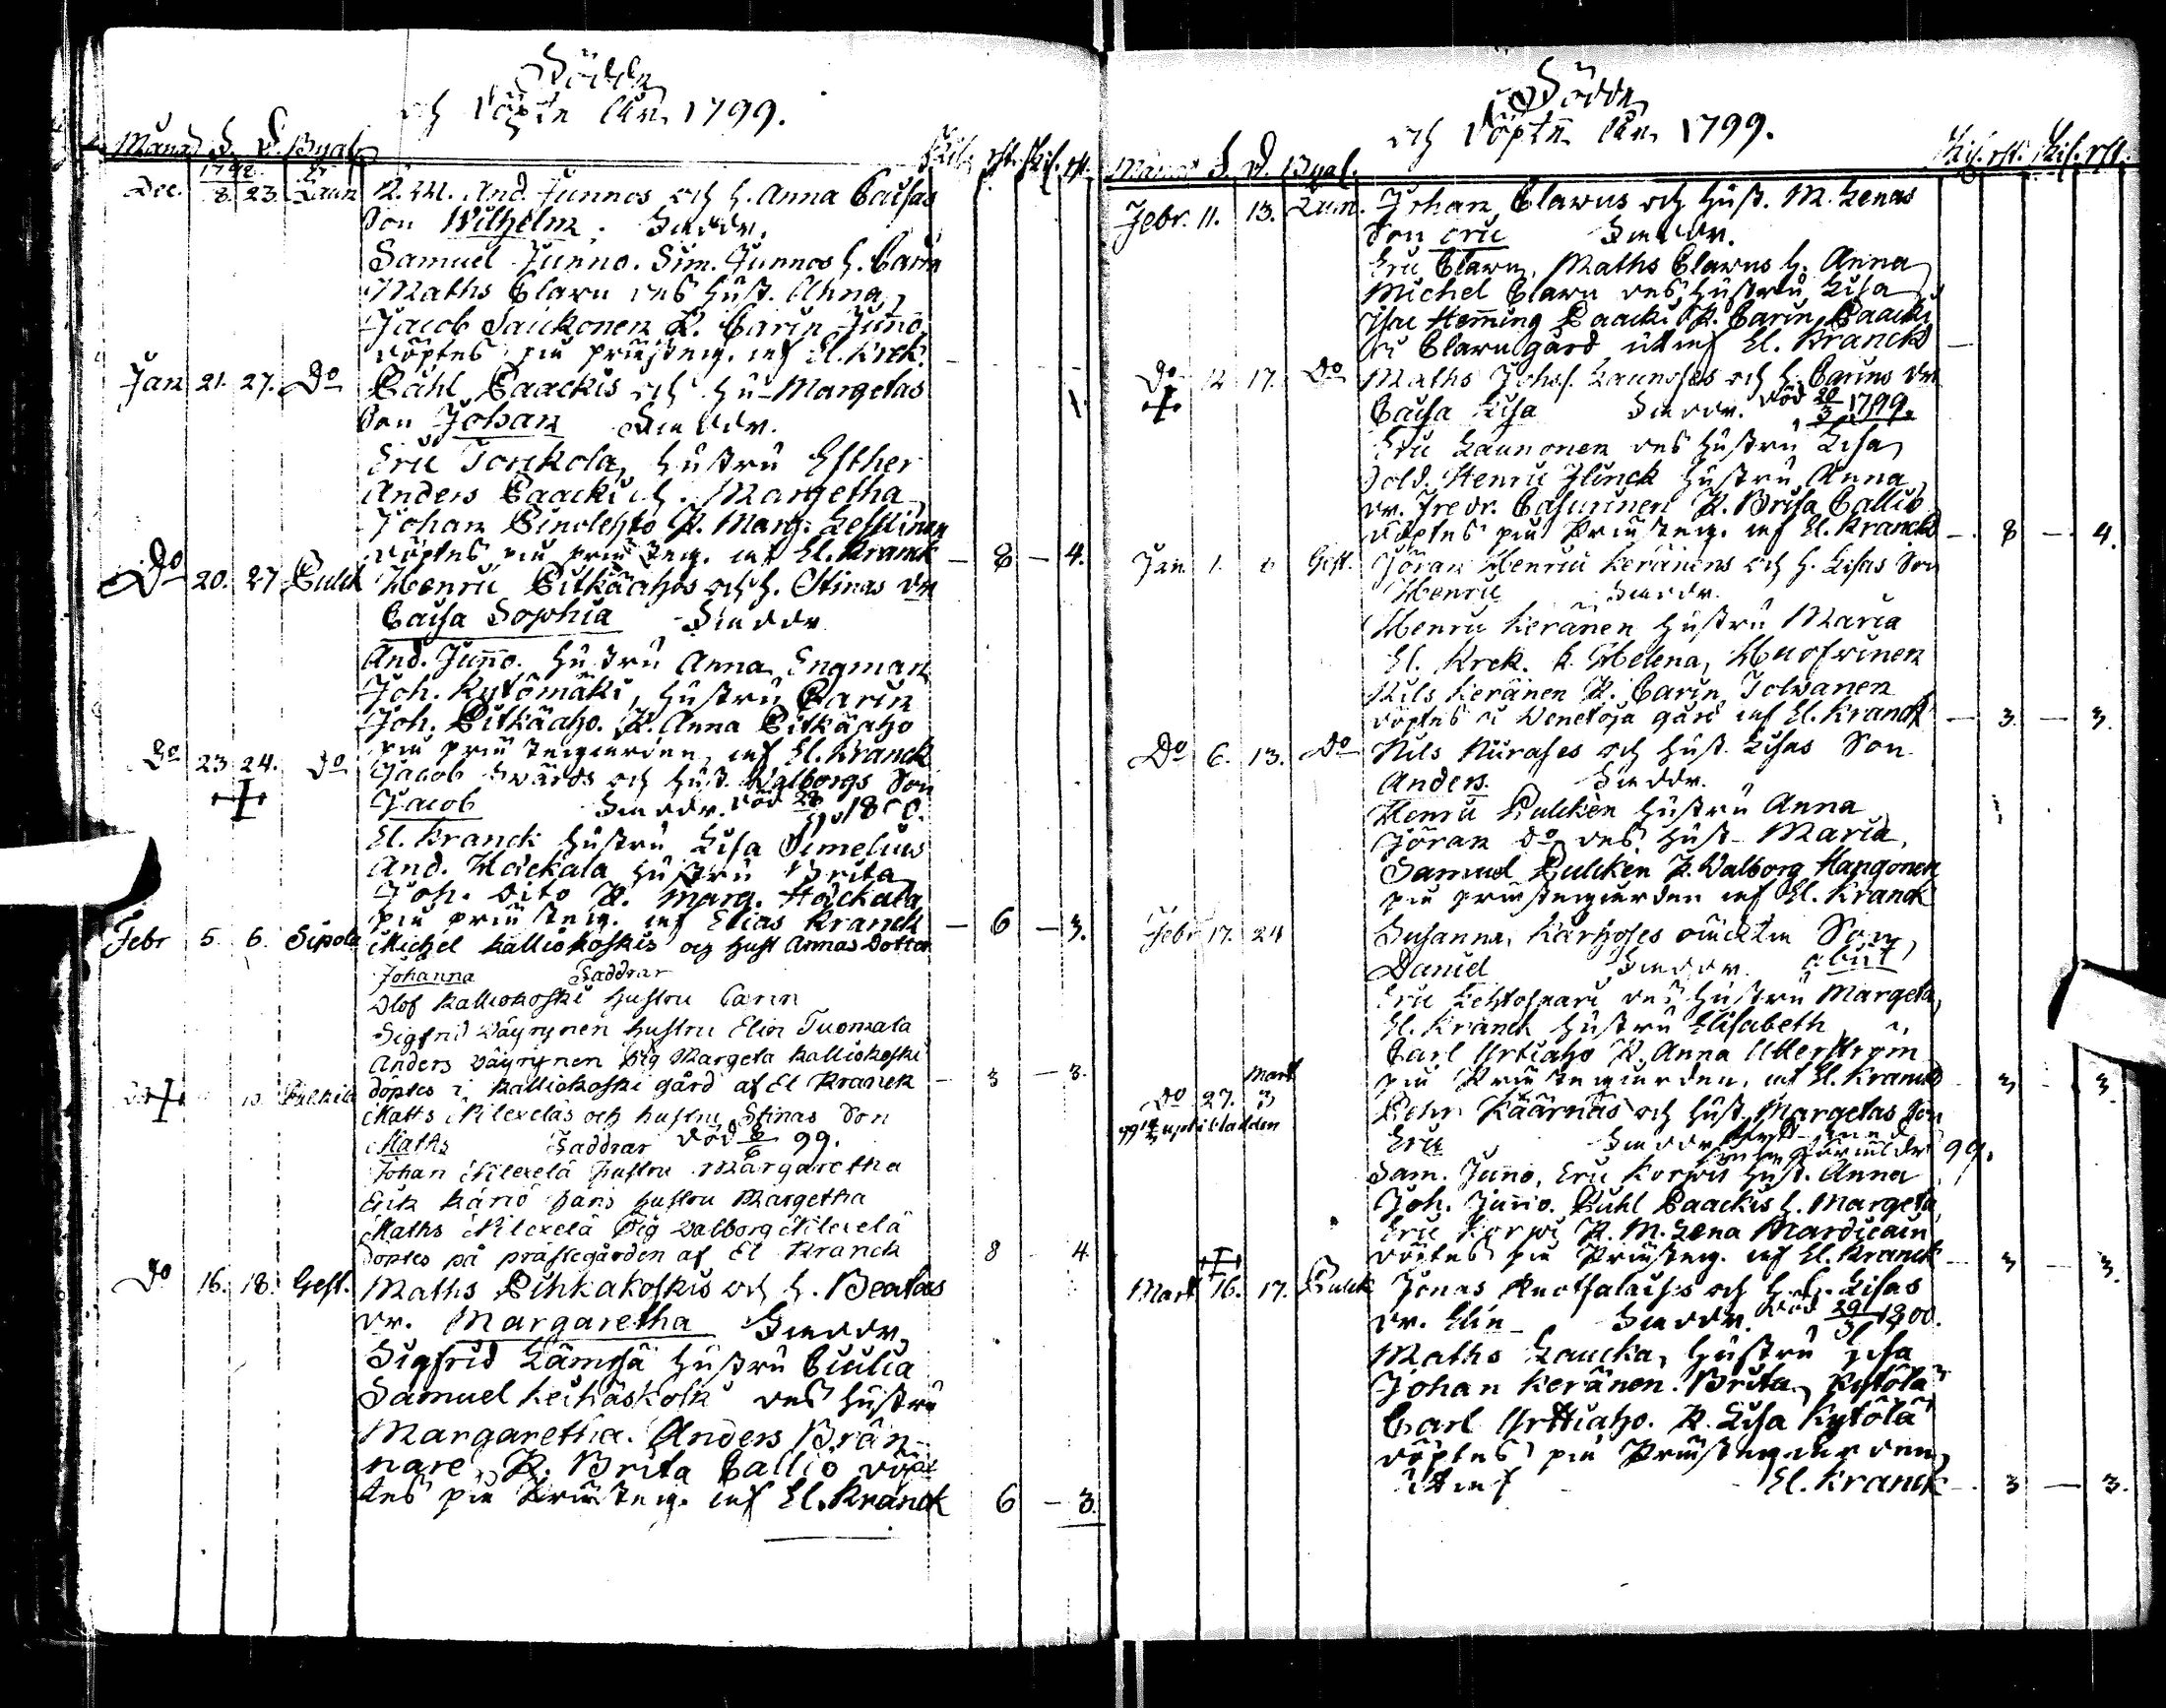 Födde
och Döpte åhr 1799.
Månad F. D. Byal.
1798
Dec. 8. 23. Laun N.M. And. Junnos och h. Anna Caisas
Son Wilhelm. Faddr.
Samuel Junno. Sim. Junnos h. Carin
Maths Claru des hust. Anna,
Jacob Sauckonen P. Carin Juno.
döptes på prästeg. af El. Krck.
Jan 21. 27. Do Påhl Paackis och hu- Margetas
Son Johan Faddr.
Eric Torckola, hustru Esther
Anders Paacki h. Margetha
Johan Pinolehto P. Marg. Leskinen
döptes på präst teg. af El. Kranck — 8 — 4.
Do 20. 27 Pulck Henric Pitkäahos och h. Stinas dr
Caisa Sophia Faddr
And. Juno. hustru Anna Engman
Joh. Kytömäki, hustru Carin
Joh. Pitkäaho. P. Anna Pitkäaho
på prästegården, af El. Kranck
Do 23 24. Do Jacob Swärds och hust. Walborgs Son
Jacob Faddr. död 28 1800.
El. Kranck hustru Lisa Simelius
And. Hackala hustru Brita
Joh. Dito P. Marg. Hackala
på prästeg. af Elias Kranck — 6 — 3.
Febr 5. 6. Sipola Michel Kalliokoskis och hust Annas Dotter
Johanna Faddrar
Olof Kalliokoski hustru Carin
Sigfrid Wäyrynen hustru Elin Tuomala
Anders Wäyrynen Pig Margeta Kalliokoski
doptes i Kalliokoski gård af El Kranck — 3 — 3.
Do 10. Matts Nilexeläs och hustru Stinas Son
Maths Faddrar död 8/6 99.
Johan Nilexelä hustru Margaretha
Erik Kärnö hans hustru Margetha
Maths Nilexelä Pig Walborg Nilexelä
doptes på prästegården af El Kranck 8 4.
Do 16. 18. Gest. Maths Pihkakoskis och h. Beatas
dr. Margaretha Faddr,
Sigfrid Lämsä hustru Cicilia
Samuel Keihäskoski des hustru
Margaretha. Anders Brän-
nare, P. Brita Callio döp-
tes på Prästeg. af El. Kranck 6 — 3.
Födde
och Döpte åhr 1799.
Månad F. D. Byal.
Febr. 11. 13. Laun. Johan Clarus och hust. M. Lenas
Son Eric Faddr.
Eric Claru, Maths Clarus h. Anna
Michel Claru des hustru Lisa
Isac Heming Paacki P. Carin Paacki
i Claru gård af El. Kranck —
Do 12 17. Do Maths Johss. Launoses och h. Carins dr
Caisa Lisa Faddr. död 20/3 1799.
Eric Launonen des hustru Lisa
Sold. Henric Flinck hustru Anna
dr. Fredr. Casurinen P. Brita Callio
döptes på Prästeg. af El. Kranck — 8 — 4.
Jan. 1. 6 Gest. Jöran Henric Keränens och h. Lisas Son
Henric Faddr.
Henric Keränen hustru Maria
El. Krck. P. Helena,
Nils Keränen P. Carin Tolwanen
döptes i Wenetoja gård af El. Kranck — 3. — 3.
Do 6. 13. Do Nils Nurases och hust. Lisas Son
Anders. Faddr.
Henric Pulcken hustru Anna
Jöran Do des hust- Maria,
Samuel Pulcken P. Walborg Hangonen
på prästegården af El. Kranck
Febr 17. 24 Susanna Karhoses oäckta Son
Daniel Faddr.
Eric Lehtosaari des hustru Margeta
El. Kranck hustru Elisabeth
Carl Urtiaho P. Anna Utterström
på Prästegården, af El. Kranck 3 — 3.
Do 27. Mart 3 Pehr Käärnäs och hust. Margetas Son
Eric Faddr 99.
Sam. Juno, Eric Korpis hust. Anna
Joh. Juno. Påhl Paackis h. Margeta
Eric Korpi P. M. Lena Mardicain
döptes på Prästeg. af El. Kranck 3 — 3.
Mart 16. 17. Pulck Jonas Ruotsalaises och h. Lisas
dr. Elin Faddr. död 29/3 1800.
Maths Laucka, hustru Lisa
Johan Keränen. Brita Kytölä
Carl Urttiaho. P. Lisa Kytölä
döptes på Prästegården,
af El. Kranck — 3 — 3.